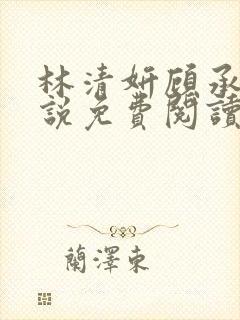 林清妍顾承
說免費閱讀
蘭澤東